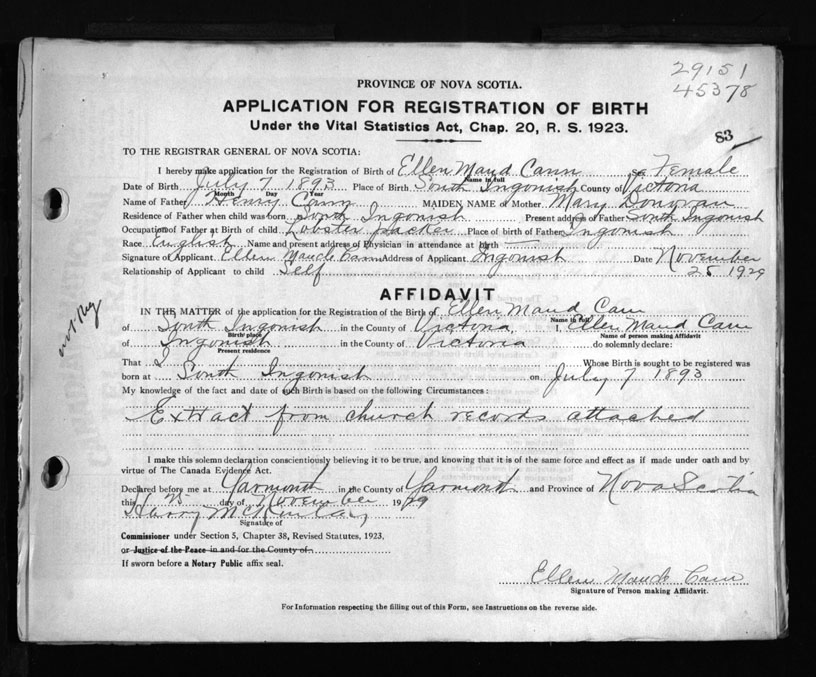 29151
45378
PROVINCE OF NOVA SCOTIA.
APPLICATION FOR REGISTRATION OF BIRTH
Under the Vital Statistics Act, Chap. 20, R. S. 1923.
83
TO THE REGISTRAR GENERAL OF NOVA SCOTIA:
I hereby make application for the Registration of Birth of Ellen Maud Cann Sex Female
Name in full
Date of Birth July 7 1893 Place of Birth South Ingonish County of Victoria
Month Day Year
Name of Father Henry Cann MAIDEN NAME of Mother Mary Donovan
Residence of Father when child was born South Ingonish Present address of Father South Ingonish
Occupation of Father at Birth of child Lobster Packer Place of birth of Father Ingonish
Race English Name and present address of Physician in attendance at birth —
Signature of Applicant Ellen Maude Cann Address of Applicant Ingonish Date November
Relationship of Applicant to child Self 25 1929
AFFIDAVIT
IN THE MATTER of the application for the Registration of the Birth of Ellen Maud Cann
Name in full
of South Ingonish in the County of Victoria, I, Ellen Maud Cann
Birth place Name of person making Affidavit
of Ingonish in the County of Victoria do solemnly declare:
Present residence
not Reg
That I Whose Birth is sought to be registered was
born at South Ingonish on July 7 1893
My knowledge of the fact and date of such Birth is based on the following Circumstances:
Extract from church records attached
I make this solemn declaration conscientiously believing it to be true, and knowing that it is of the same force and effect as if made under oath and by
virtue of The Canada Evidence Act.
Declared before me at Yarmouth in the County of Yarmouth and Province of Nova Scotia
this 25 day of November 1929
Harry
Signature of
Commissioner under Section 5, Chapter 38, Revised Statutes, 1923,
or Justice of the Peace in and for the County of
If sworn before a Notary Public affix seal.
Ellen Maude Cann
Signature of Person making Affidavit.
For Information respecting the filling out of this Form, see Instructions on the reverse side.